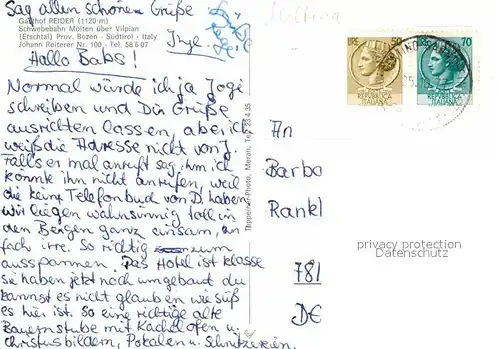 Sag allen schönen Grüße
Gasthof REIDER (1120 m)
Schwebebahn Mölten über Vilpian
(Etschtal) Prov. Bozen - Südtirol - Italy
Johann Reiterer Nr. 100 - Tel. 58 6 07
Inge
Hallo Babs!
Normal würde ich ja Jogi
schreiben und Dir Grüße
ausrichten lassen, aber ich
weiß die Adresse nicht von J.
Falls er mal anruft sag ihm ich
konnte ihn nicht anrufen, weil
die keine Telefonbuch von D. haben
wir liegen wahnsinnig toll in
den Bergen ganz einsam, ein-
fach irre. So richtig zum
ausspannen. Das Hotel ist klasse
sie haben jetzt noch umgebaut du
kannst es nicht glauben wie süß
es hier ist. So eine richtige alte
Bauernstube mit Kachelofen u.
Christusbildern, Pokalen u. Schnitzereien.
Tappeiner-Photo, Meran, Tel. 23 4 35
LIRE 50
REPUBBLICA
ITALIANA
70
REPUBBLICA
ITALIANA
An
Barba
Rankl
781
DE
privacy protection
Datenschutz